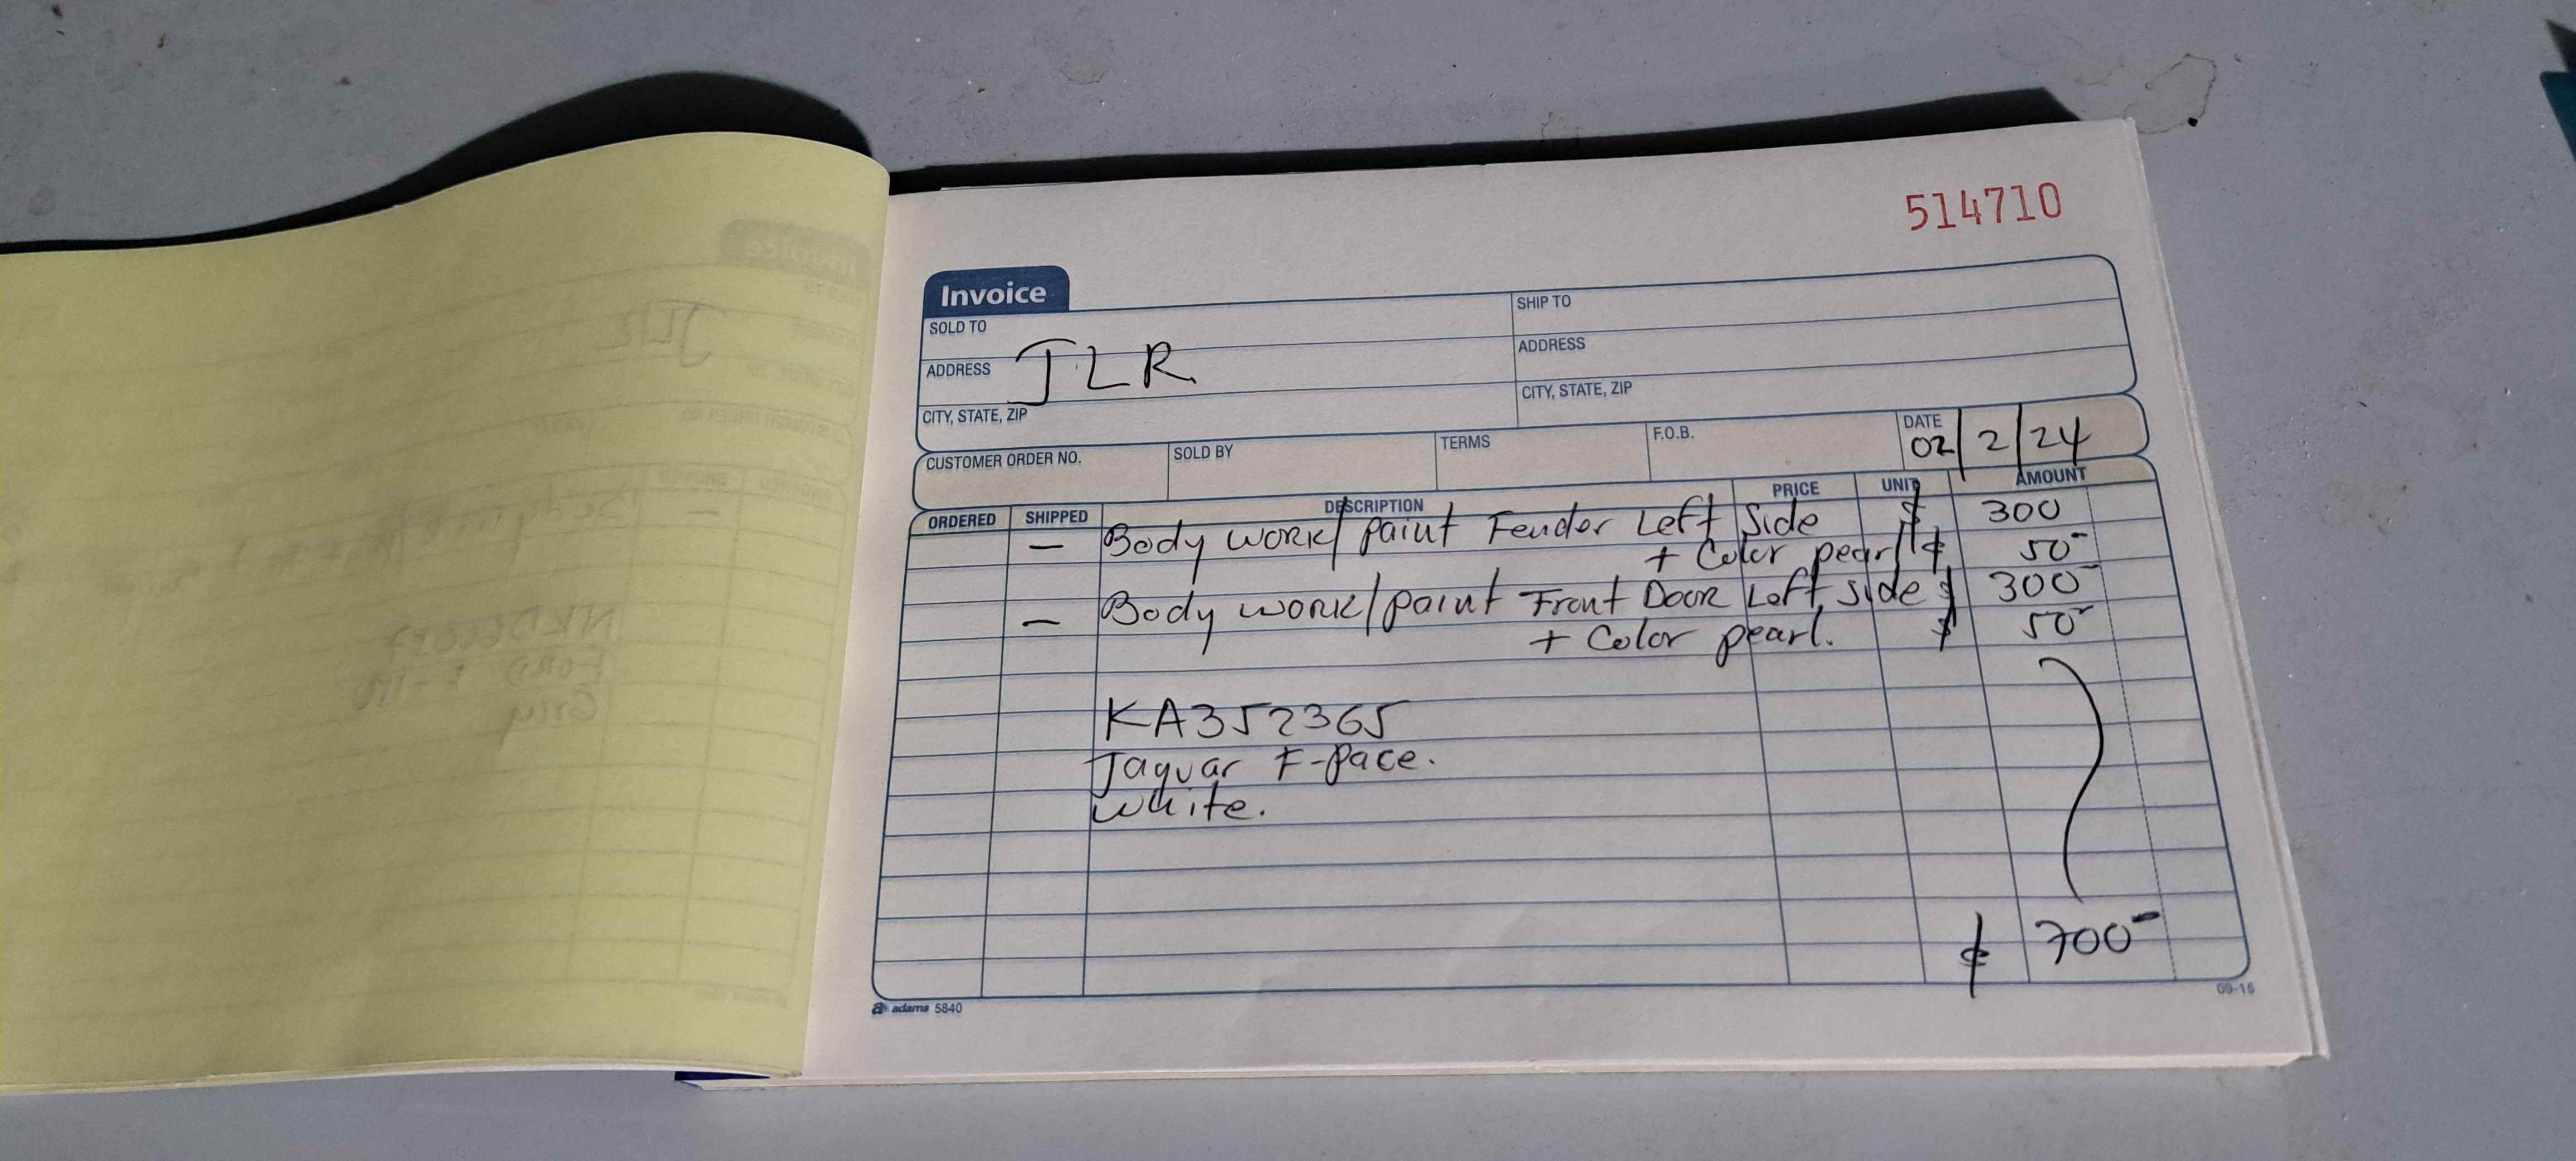 514710
Invoice
SOLD TO
SHIP TO
ADDRESS JLR
ADDRESS
CITY, STATE, ZIP
CITY, STATE, ZIP
CUSTOMER ORDER NO. SOLD BY TERMS F.O.B. DATE 02/2/24
ORDERED SHIPPED DESCRIPTION PRICE UNIT AMOUNT
— Body work/paint Fender Left Side $ 300
+ Color pearl $ 50-
— Body work/paint Front Door Left Side $ 300-
+ Color pearl. $ 50-
KA352365
Jaguar F-Pace.
White.
$ 700-
a adams 5840
09-15